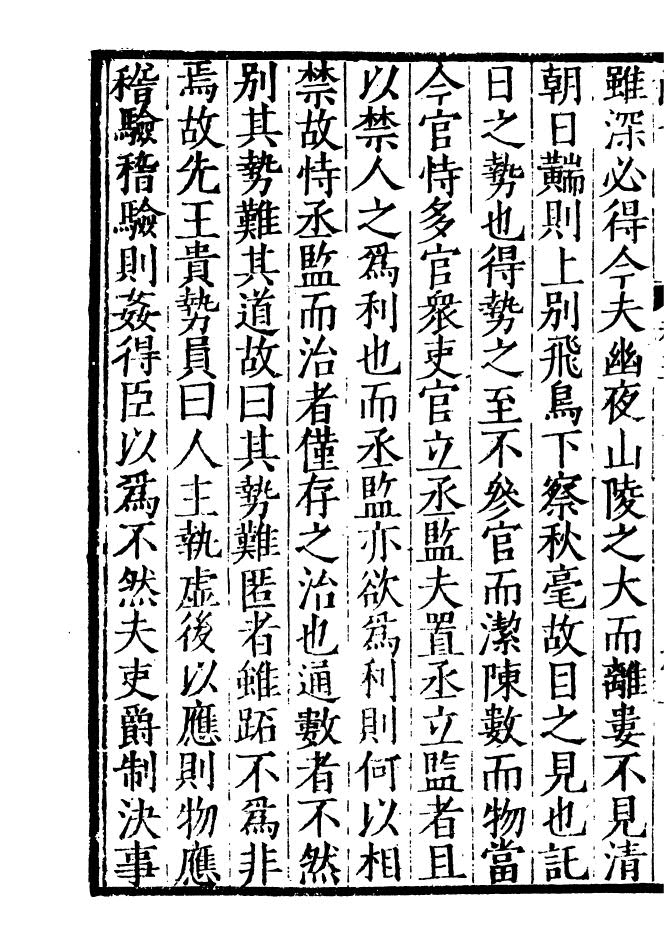 雖深必得今夫幽夜山陵之大而離婁不見清
朝日黈則上別飛鳥下察秋毫故目之見也託
日之勢也得勢之至不參官而潔陳數而物當
今官恃多官衆吏官立丞監夫置丞立監者且
以禁人之爲利也而丞監亦欲爲利則何以相
禁故恃丞監而治者僅存之治也通數者不然
別其勢難其道故曰其勢難匿者雖跖不爲非
焉故先王貴勢員曰人主執虛後以應則物應
稽驗稽驗則姦得臣以爲不然夫吏爵制決事